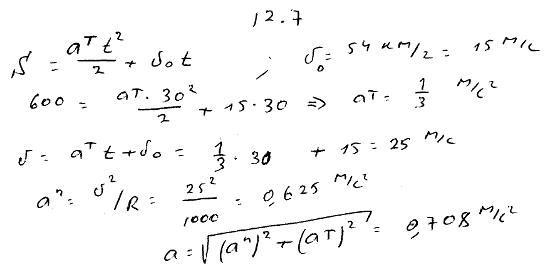 12.7
S = aᵀt²/2 + v₀t ; v₀ = 54 км/г = 15 м/с
600 = aᵀ·30²/2 + 15·30 => aᵀ = 1/3 м/с²
v = aᵀt + v₀ = 1/3 · 30 + 15 = 25 м/с
aⁿ = v²/R = 25²/1000 = 0,625 м/с²
a = √((aⁿ)² + (aᵀ)²) = 0,708 м/с²